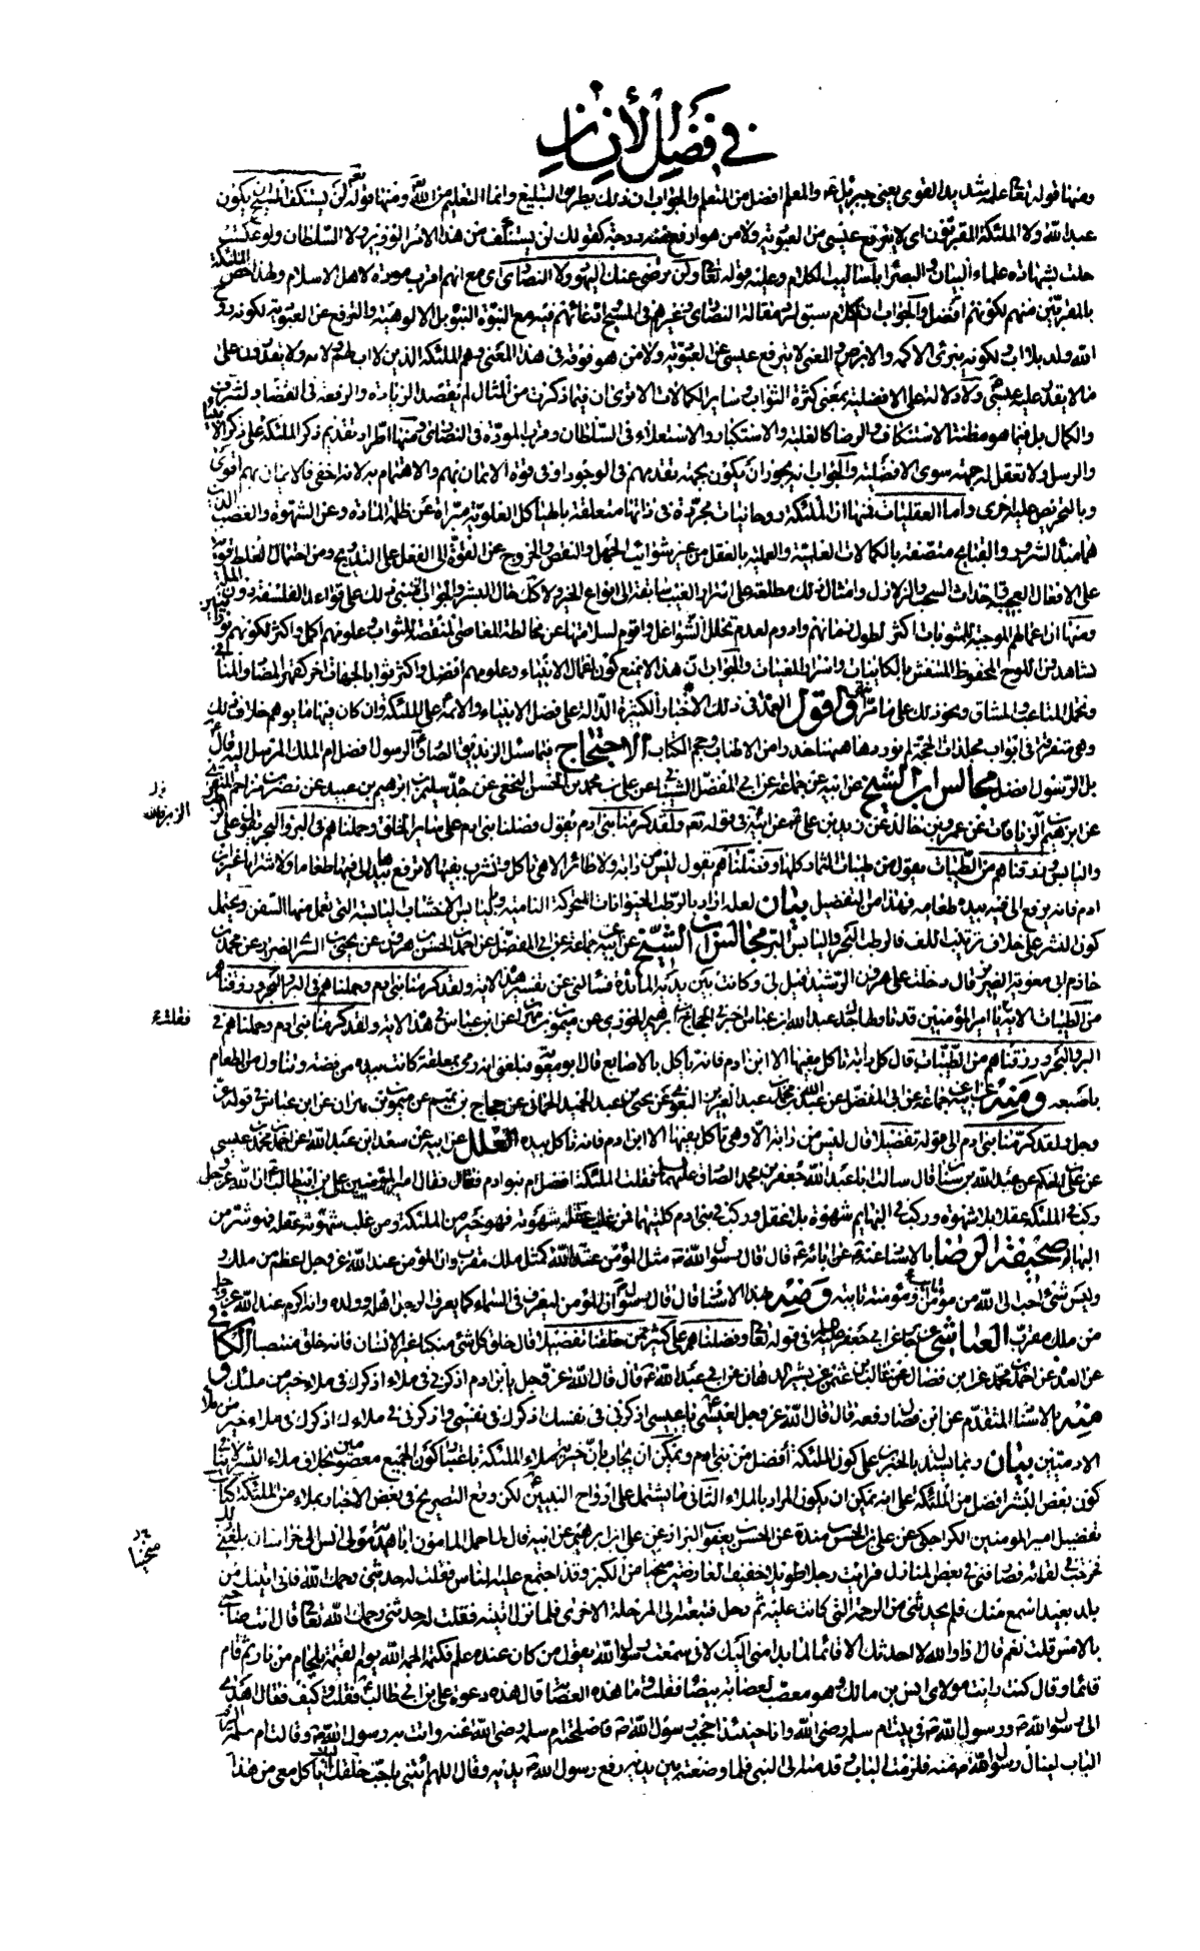 في فضل الإنسان
ومنها قوله تعالى علمه شديد القوى يعني جبرئيل ع والمعلم افضل من المتعلم والجواب ان ذلك بطريق التبليغ وانما التعليم من الله ومنها قوله تعالى لن يستنكف المسيح ان يكون
عبدا لله ولا الملئكة المقربون اى لا يترفع عيسى من العبودية ولا من هو ارفع منه درجة كقولك لن يستنكف من هذا الامر الوزير ولا السلطان ولو عكست
حلت بشهادة علماء البيان والبصراء باساليب الكلام وعليه قوله تعالى ولن ترضى عنك اليهود ولا النصارى اى مع انهم اقرب مودة لاهل الاسلام ولهذا خص الملئكة
بالمقربين منهم لكونهم افضل والجواب ان الكلام سيق لرد مقالة النصارى وغيرهم في المسيح وادعائهم فيه مع النبوة البنوة بل الالوهية والترفع عن العبودية لكونه روح
الله ولد بلا اب ولكونه يبرئ الاكمه والابرص والمعنى لا يترفع عيسى عن العبودية ولا من هو فوقه في هذا المعنى وهم الملئكة الذين لا اب لهم ولا ام ويقدرون على
ما لا يقدر عليه عيسى ولا دلالة على الافضلية بمعنى كثرة الثواب وساير الكمالات الا ترى ان فيما ذكرت من المثال لم يقصد الزيادة والرفعة في الفضل والشرف
والكمال بل فيما هو مظنة الاستنكاف والرضا كالغلبة والاستكبار والاستعلاء في السلطان وقرب المودة في النصارى ومنها اطراد تقديم ذكر الملئكة على ذكر الانبياء
والرسل ولا تعقل له جهة سوى الافضلية والجواب انه يجوز ان يكون بجهة تقدمهم في الوجود او في قوة الايمان بهم والاهتمام به لانه اخفى فالايمان بهم اقوى
وبالتحريض عليه احرى واما العقليات فمنها ان الملئكة روحانيات مجردة في ذاتها متعلقة بالهياكل العلوية مبرأة عن ظلمة المادة وعن الشهوة والغضب الذين
هما مبدأ الشرور والقبايح متصفة بالكمالات العلمية والعملية بالفعل من غير شوائب الجهل والنقص والخروج من القوة الى الفعل على التدريج ومن احتمال الغلط قوية
على الافعال العجيبة واحداث السحب والزلازل وامثال ذلك مطلعة على اسرار الغيب سابقة الى انواع الخير ولا كذلك حال البشر والجواب ان مبنى ذلك على قواعد الفلسفة دون الملة
ومنها ان اعمالهم الموجبة للمثوبات اكثر لطول زمانهم وادوم لعدم تخلل الشواغل واقوم لسلامتها عن مخالطة المعاصي المنقصة للثواب وعلومهم اكمل واكثر لكونهم نورانيين
يشاهدون اللوح المحفوظ المنتقش بالكاينات واسرار المغيبات والجواب ان هذا لا يمنع كون اعمال الانبياء وعلومهم افضل واكثر ثوابا لجهات اخر كقهر المضاد والمنافي
وتحمل المتاعب والمشاق ونحو ذلك على ما مر واقول العمدة في ذلك الاخبار الكثيرة الدالة على فضل الانبياء والائمة على الملئكة وان كان فيها ما يوهم خلاف ذلك
وهي متفرقة في ابواب مجلدات الحجة لم نوردها ههنا حذرا من الاطناب وحجم الكتاب الاحتجاج فيما سئل الزنديق الصادق الرسول افضل ام الملك المرسل اليه قال
بل الرسول افضل مجالس ابن الشيخ عن ابيه عن جماعة عن ابي المفضل الشيباني عن علي بن محمد بن الحسن النخعي عن جده سليمن بن ابرهيم بن عبيد عن نصر بن مزاحم المنقري
عن ابرهيم الزبرقان عن عمرو بن خالد عن زيد بن علي عن ابيه في قوله تعالى ولقد كرمنا بني ادم يقول فضلنا بني ادم على ساير الخلق وحملناهم في البر والبحر يقول على الرطب
واليابس ورزقناهم من الطيبات يقول من طيبات الثمار كلها وفضلناهم يقول ليس من دابة ولا طائر الا هي تأكل وتشرب بفيها لا ترفع بيدها الى فيها طعاما ولا شرابا غير ابن
ادم فانه يرفع الى فيه بيده طعامه فهذا من التفضيل بيان لعله اراد بالرطب الحيوانات المتحركة النامية وباليابس الاخشاب اليابسة التي تعمل منها السفن ويحتمل
كون النشر على خلاف ترتيب اللف فالرطب البحر واليابس البر مجالس ابن الشيخ عن ابيه عن جماعة عن ابي المفضل عن احمد بن الحسن بن هرون عن يحيى بن السري الضرير عن محمد بن
خازم ابي معوية الضرير قال دخلت على هرون الرشيد قيل لي وكانت بين يديه المائدة فسألني عن تفسير هذه الاية ولقد كرمنا بني ادم وحملناهم في البر والبحر ورزقناهم
من الطيبات الاية يا امير المؤمنين قد تاولها جدك عبد الله ابن عباس اخبرني الحجاج بن ابرهيم الخوزي عن ميمون بن مهران عن ابن عباس في هذه الاية ولقد كرمنا بني ادم وحملناهم في
البر والبحر ورزقناهم من الطيبات قال كل دابة تاكل بفيها الا ابن ادم فانه يأكل بالاصابع قال ابو معوية فبلغني انه رمى بملعقة كانت بيده من فضة وتناول من الطعام
باصبعه ومنه عن ابيه عن جماعة عن ابي المفضل عن عبد الله بن محمد بن عبد العزيز البغوي عن يحيى بن عبد الحميد الحماني عن حجاج بن تميم عن ميمون بن مهران عن ابن عباس في قوله عز
وجل ولقد كرمنا بني ادم الى قوله تفضيلا قال ليس من دابة الا وهي تأكل بفيها الا ابن ادم فانه ياكل بيده العلل عن ابيه عن سعد ابن عبد الله عن احمد بن محمد بن عيسى
عن علي بن الحكم عن عبد الله بن سنان قال سالت ابا عبد الله جعفر بن محمد الصادق عليهما السلم فقلت الملئكة افضل ام بنو ادم فقال فقال امير المؤمنين علي بن ابيطالب ان الله عز وجل
ركب في الملئكة عقلا بلا شهوة وركب في البهايم شهوة بلا عقل وركب في بني ادم كليتهما فمن غلب عقله شهوته فهو خير من الملئكة ومن غلب شهوته عقله فهو شر من
البهائم صحيفة الرضا بالاسناد عنه عن ابائه ع قال قال رسول الله ص مثل المؤمن عند الله كمثل ملك مقرب وان المؤمن عند الله عز وجل اعظم من ملك و
وليس شئ احب الى الله من مؤمن تايب ومؤمنة تايبة ومنه بهذا الاسناد قال قال رسول الله ان المؤمن ليعرف في السماء كما يعرف الرجل اهله وولده وانه اكرم عند الله عز وجل
من ملك مقرب العياشي عن جابر عن ابي جعفر عليه السلم في قوله تعالى وفضلناهم على كثير ممن خلقنا تفضيلا قال خلق كل شئ منكبا غير الانسان فانه خلق منتصبا الكافي
عن العدة عن احمد بن محمد عن ابن فضال عن غالب بن عثمن عن بشير الدهان عن ابي عبد الله ع قال قال الله عز وجل يا بن ادم اذكرني في ملاء اذكرك في ملاء خير من ملئك و
منه بالاسناد المتقدم عن ابن فضال رفعه قال قال الله عز وجل لعيسى يا عيسى اذكرني في نفسك اذكرك في نفسي واذكرني في ملاءك اذكرك في ملاء خير من ملاء
الادميين بيان ربما يستدل بالخبرين على كون الملئكة افضل من بني ادم ويمكن ان يجاب بان خيرية ملاء الملئكة باعتبار كون الجميع معصومين بخلاف ملاء البشر فلا ينافي
كون بعض البشر افضل من الملئكة على انه يمكن ان يكون المراد بالملاء الثاني ما يشتمل على ارواح النبيين لكن وقع التصريح في بعض الاخبار بملاء من الملئكة كتاب
تفضيل امير المومنين للكراجكي عن علي بن الحسن بن مندة عن الحسن بن يعقوب البزاز عن علي ابن ابرهيم عن ابيه قال لما حمل المامون ابا هدبة مولى انس الى خراسان بلغني ذلك
فخرجت في لقائه فصادفني في بعض المنازل فرايت رجلا طويلا خفيف العارضين منحنيا من الكبر وقد اجتمع عليه الناس فقلت له حدثني رحمك الله فاني اتيتك من
بلد بعيد اسمع منك فلم يحدثني من الزحمة التي كانت عليه ثم رحل فتبعته الى المرحلة الاخرى فلما نزل اتيته فقلت له حدثني رحمك الله تعالى قال انت صاحبي
بالامس قلت نعم قال اذا والله لا احدثك الا قائما لما بدا مني اليك لاني سمعت رسول الله يقول من كان عنده علم فكتمه الجمه الله يوم القيمة بلجام من نار ثم قام
قائما وقال كنت رايت مولاي انس بن مالك وهو معصب بعصابة بيضاء فقلت وما هذه العصابة قال هذه دعوة علي بن ابي طالب فقلت وكيف فقال اهدي
الى رسول الله ص ورسول الله ص في بيت ام سلمة رضي الله وانا حينئذ احجب رسول الله ص فاصلحته ام سلمة رضي الله عنه واتت به رسول الله ص وقالت ام سلمة الزم
الباب لينال رسول الله ص منه فلزمت الباب وقدمته الى النبي فلما وضعته بين يديه رفع رسول الله ص يديه وقال اللهم ائتني باحب خلقك اليك ياكل معي من هذا
الزبرقان
فقلت ع
منحنيا